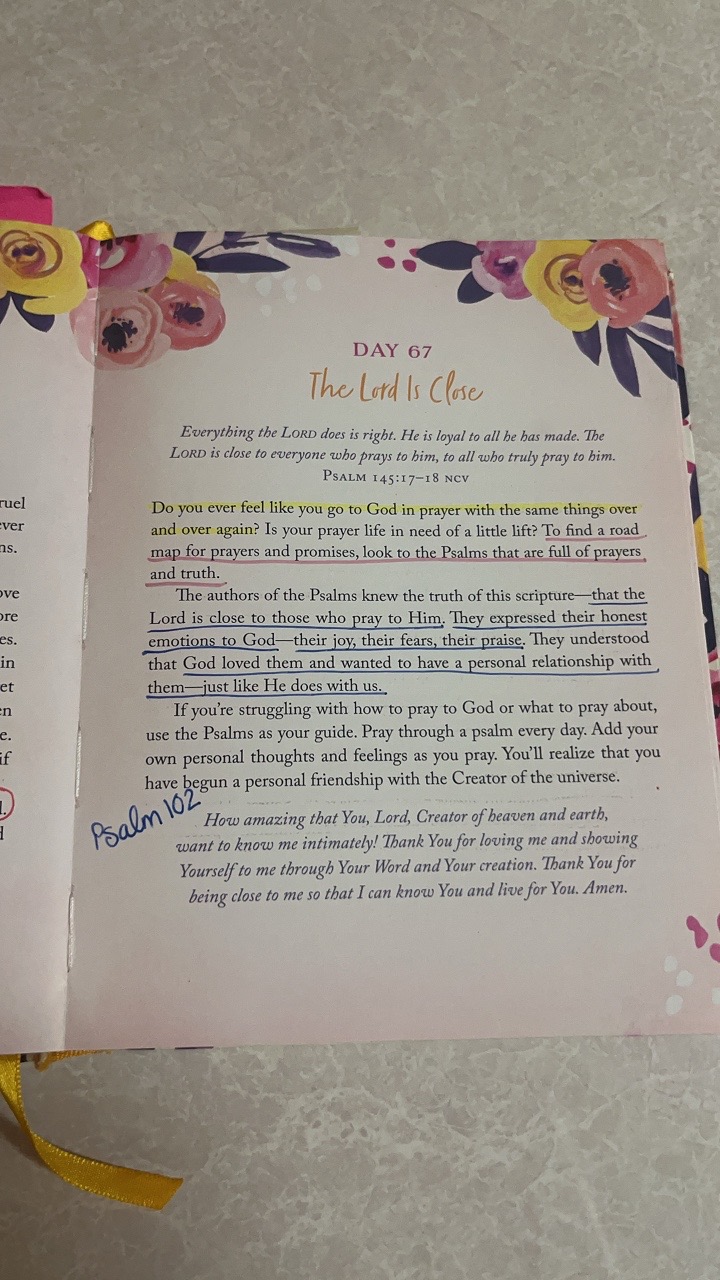 ruel
ever
ns.
ove
ore
es.
in
et
en
e.
if
d
DAY 67
The Lord Is Close
Everything the LORD does is right. He is loyal to all he has made. The
LORD is close to everyone who prays to him, to all who truly pray to him.
PSALM 145:17–18 NCV
Do you ever feel like you go to God in prayer with the same things over
and over again? Is your prayer life in need of a little lift? To find a road
map for prayers and promises, look to the Psalms that are full of prayers
and truth.
The authors of the Psalms knew the truth of this scripture—that the
Lord is close to those who pray to Him. They expressed their honest
emotions to God—their joy, their fears, their praise. They understood
that God loved them and wanted to have a personal relationship with
them—just like He does with us.
If you're struggling with how to pray to God or what to pray about,
use the Psalms as your guide. Pray through a psalm every day. Add your
own personal thoughts and feelings as you pray. You'll realize that you
have begun a personal friendship with the Creator of the universe.
Psalm 102
How amazing that You, Lord, Creator of heaven and earth,
want to know me intimately! Thank You for loving me and showing
Yourself to me through Your Word and Your creation. Thank You for
being close to me so that I can know You and live for You. Amen.